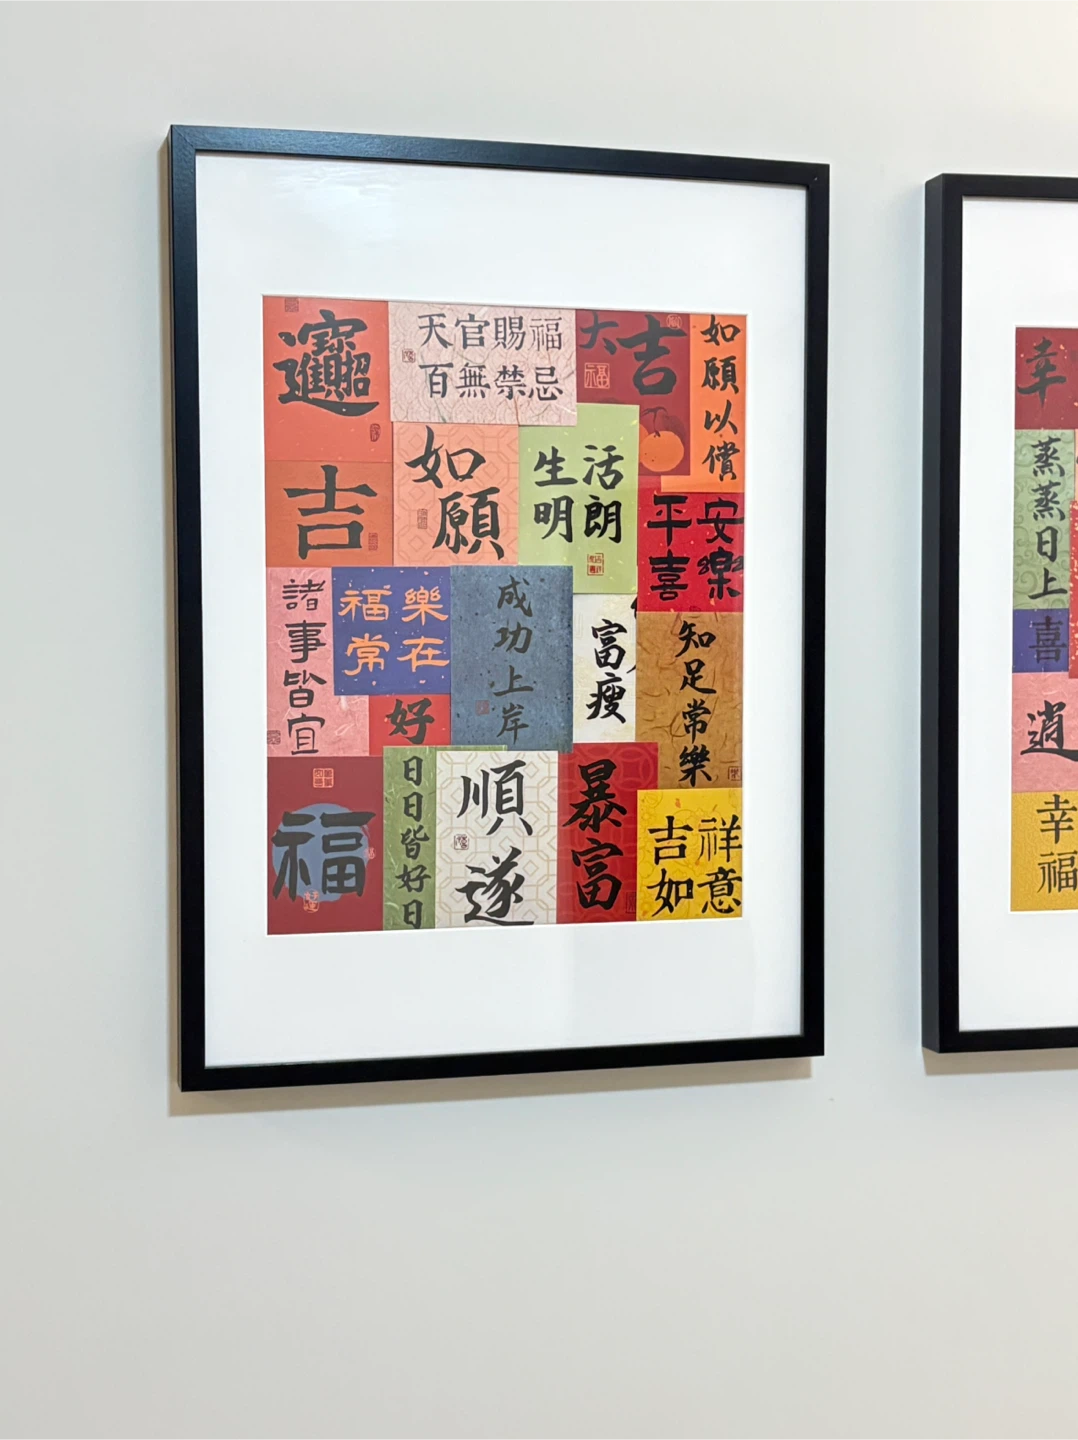 招財進寶
天官賜福
百無禁忌
大吉
如願以償
吉
如願
生活
明朗
平安
喜樂
諸事皆宜
福樂
常在
成功上岸
富瘦
知足常樂
好
福
日日皆好日
順遂
暴富
吉祥
如意
幸
蒸蒸日上
喜
逍
幸福